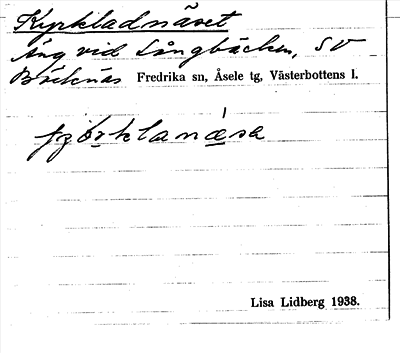 Kyrkladnäset
Äng vid Långbäcken, SV
Fredrika sn, Åsele tg, Västerbottens l.
Lisa Lidberg 1938.